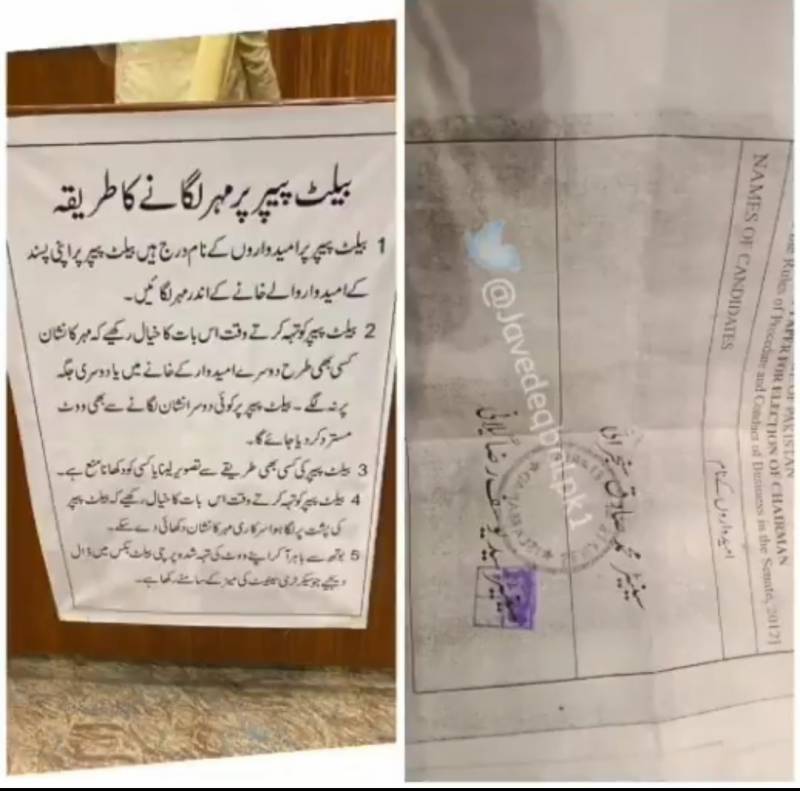 بیلٹ پیپر پر مہر لگانے کا طریقہ
1 بیلٹ پیپر پر امیدواروں کے نام درج ہیں بیلٹ پیپر پر اپنی پسند
کے امیدوار والے خانے کے اندر مہر لگائیں۔
2 بیلٹ پیپر کو تہہ کرتے وقت اس بات کا خیال رکھیے کہ مہر کا نشان
کسی بھی طرح دوسرے امیدوار کے خانے میں یا دوسری جگہ
پر نہ لگے۔ بیلٹ پیپر پر کوئی دوسرا نشان لگانے سے بھی ووٹ
مسترد کر دیا جائے گا۔
3 بیلٹ پیپر کی کسی بھی طریقے سے تصویر لینا یا کسی کو دکھانا منع ہے۔
4 بیلٹ پیپر کو تہہ کرتے وقت اس بات کا خیال رکھیے کہ بیلٹ پیپر
کی پشت پر لگا ہوا سرکاری مہر کا نشان دکھائی دے سکے۔
5 بوتھ سے باہر آ کر اپنے ووٹ کی تہہ شدہ پرچی بیلٹ بکس میں ڈال
دیجیے جو سیکرٹری سینیٹ کی میز کے سامنے رکھا ہے۔
OF PAKISTAN
PAPER FOR ELECTION OF CHAIRMAN
the Rules of Procedure and Conduct of Business in the Senate, 2012]
NAMES OF CANDIDATES
امیدواروں کے نام
سینیٹر محمد صادق سنجرانی
سید یوسف رضا گیلانی
@Javedeqbalpk1